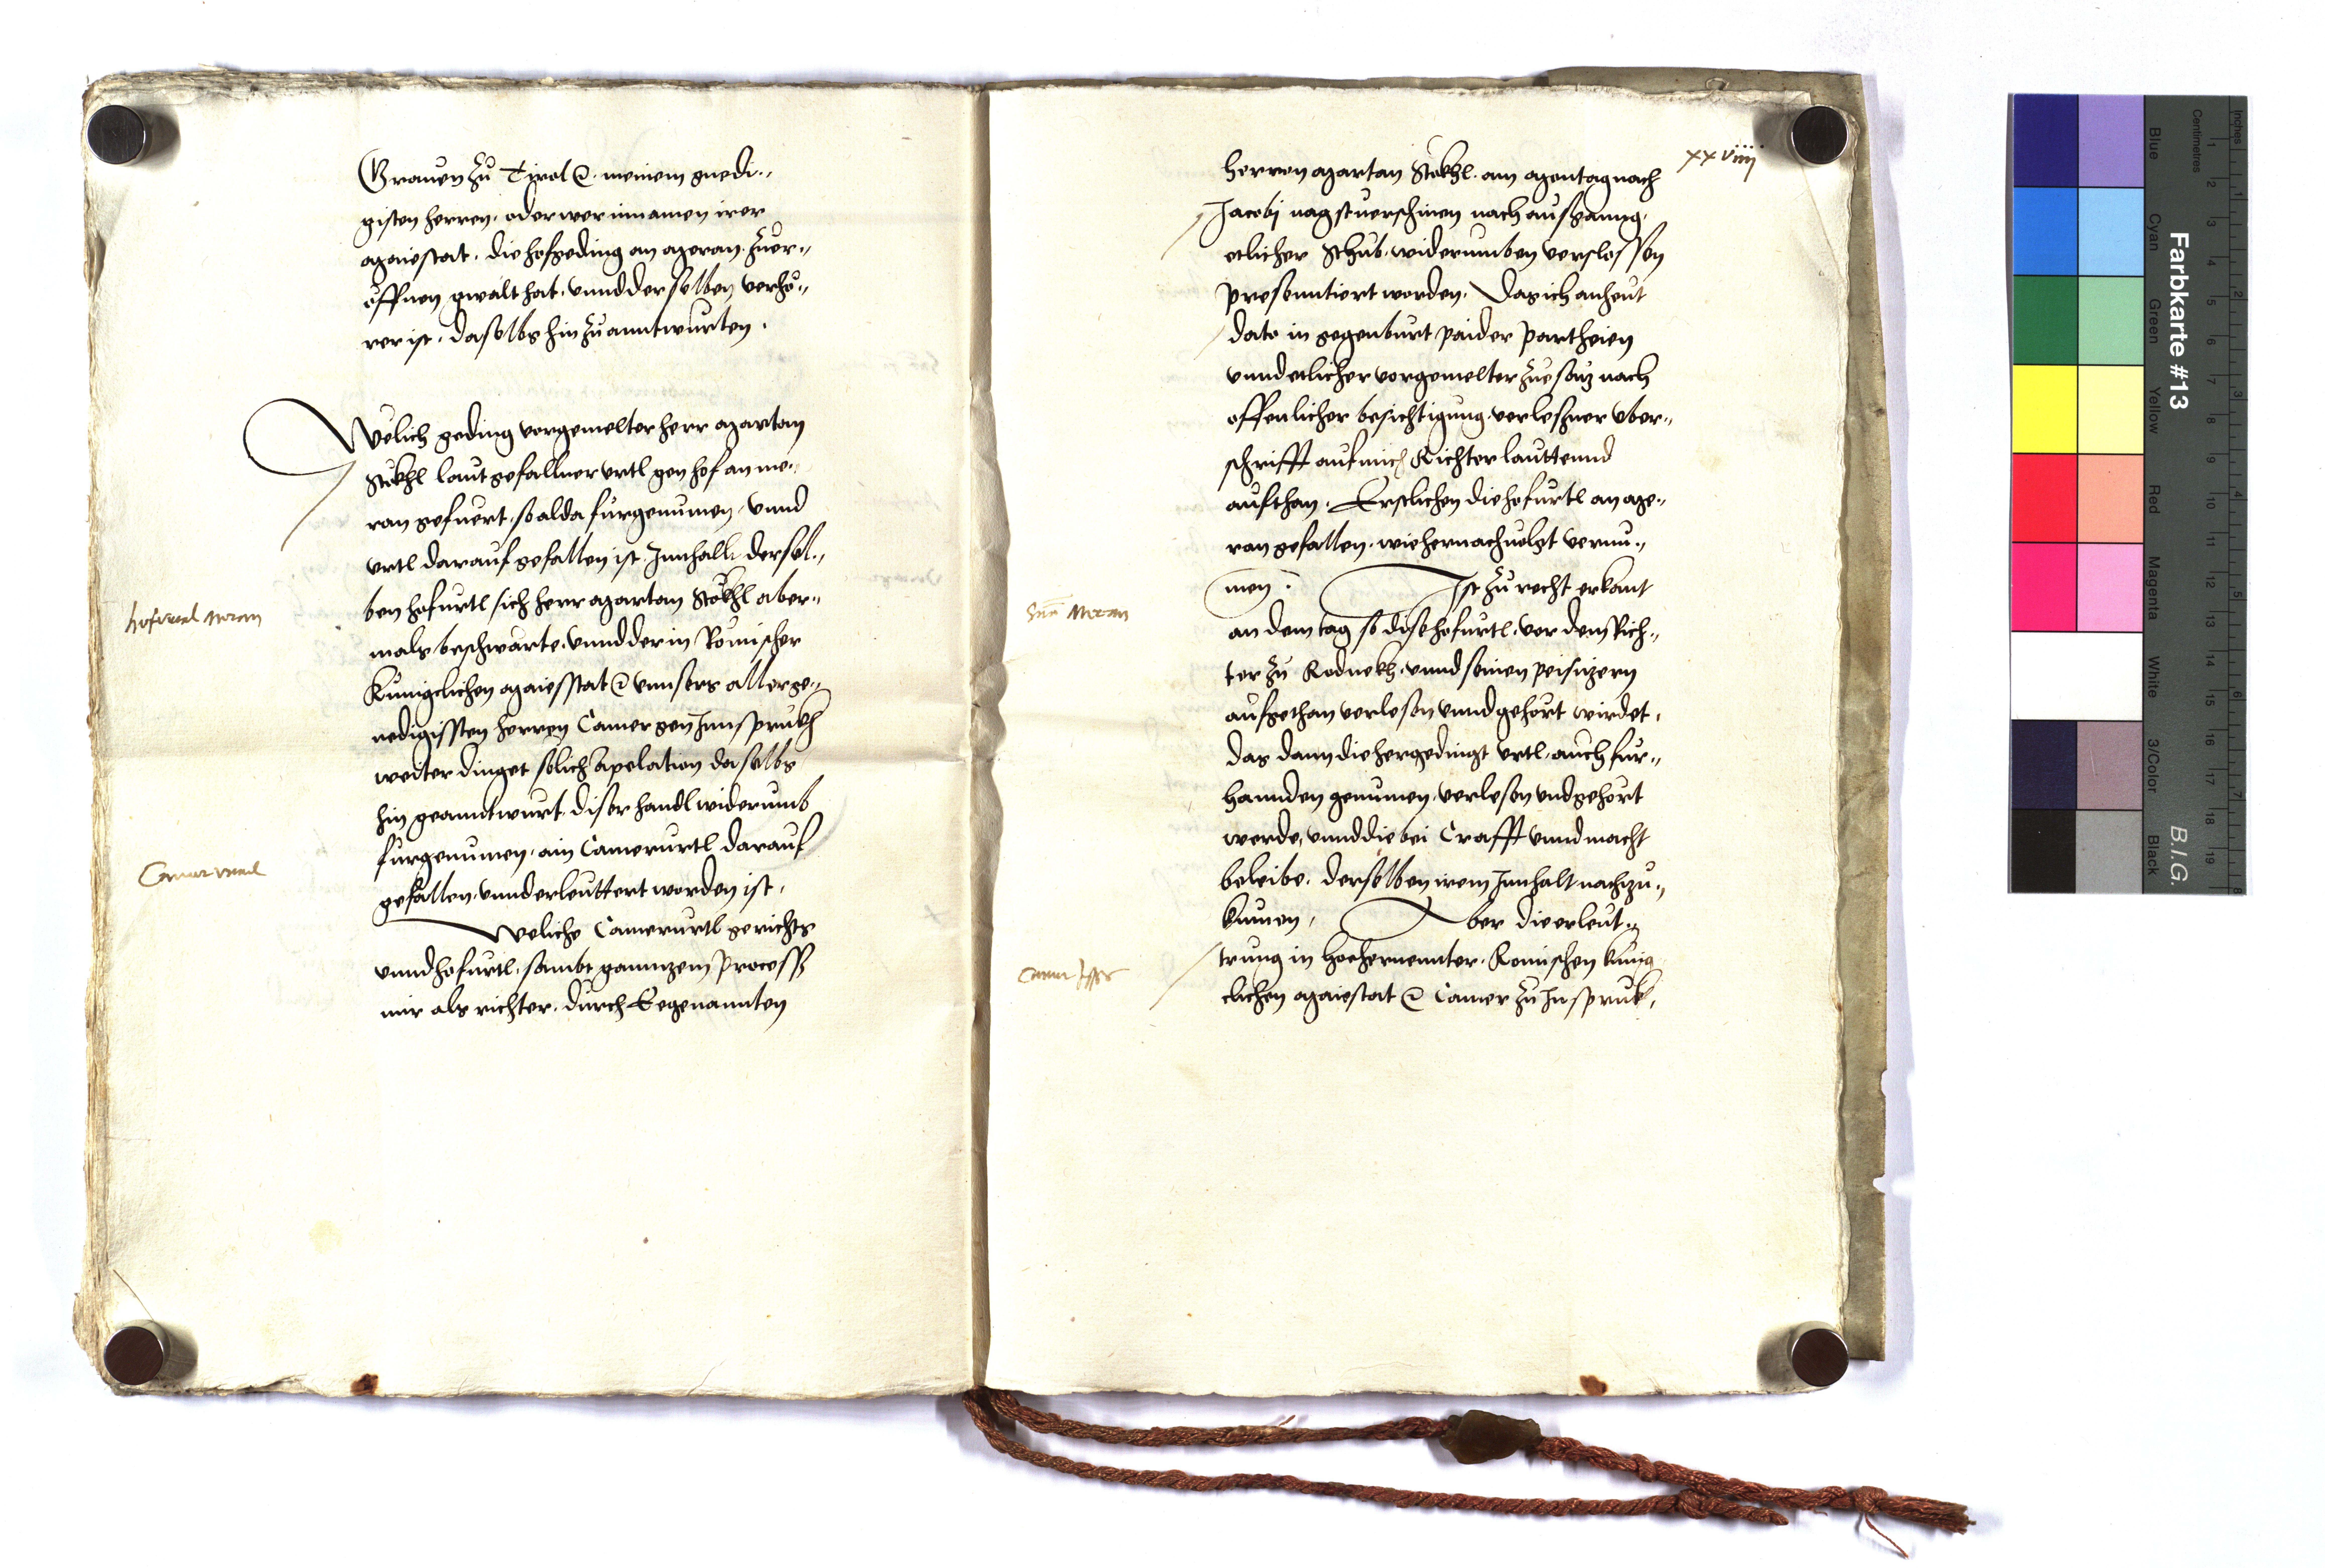 Grauen zu Tirol &c. meinem gnedi„
gisten herren, oder wer in namen irer
Maiestat, die hofgeding an Meran zuer„
öffnen gwalt hat, vnnd derselben verhö„
rer ist, daselbs hin zu anntwurten.
Welich geding vorgemelter herr Martan
Stökhl laut gefallner vrtl gen hof an Me„
ran gefuert, so alda furgenumen, vnnd
vrtl darauf gefallen ist. Innhallt dersel„
ben hofurtl sich herr Martan Stökhl aber„
mals beschwärte, vnnd der in Römischer
Kunigclichen Maiesstat &c vnnsers allerge„
nedigissten herren Camer gen Innsprukh
weiter dinget sölich apelation daselbs
hin geanntwurt, diser handl widerumb
furgenumen, ain Camerurtl darauf
gefallen, vnnd erleuttert worden ist,
Weliche Camerurtl gerichts
vnnd hofurtl, sambt ganntzem process
mir als richter, durch Eegenannten
hofurtal Meran
Camer vrtail
xxviiij
herren Martan Stökhl, am Montag nach
Jacobj nagst verschinen nach ausganng,
etlicher Schub, widerumben verslossen
presenntiert worden. Das ich anheut
dato in gegenburt paider partheien
vnnd etlicher vorgemelter zuesätz nach
offenlicher besichtigung, verlesner vber„
schrifft auf mich Richter lauttennd
aufthan. Erstlichen die hofurtl an Me„
ran gefallen, wie hernach uolgt vernu„
men. Ist zu recht erkant
an dem tag so dise hofurtl, vor dem Rich„
ter zu Rodnekh, vnnd seinen peisitzern
aufgethan verlesen vnnd gehört wirdet,
das dann die hergedingt vrtl, auch fur„
hannden genumen, verlesen vnd gehört
werde, vnnd die bei Crafft vnnd macht
beleibe, derselben irem Innhalt nachzu„
kumen, Aber die erleut„
trung in hochernennter, Romischen kunig
clichen Maiestat &c Camer zu Insprukh,
Meran
Camer